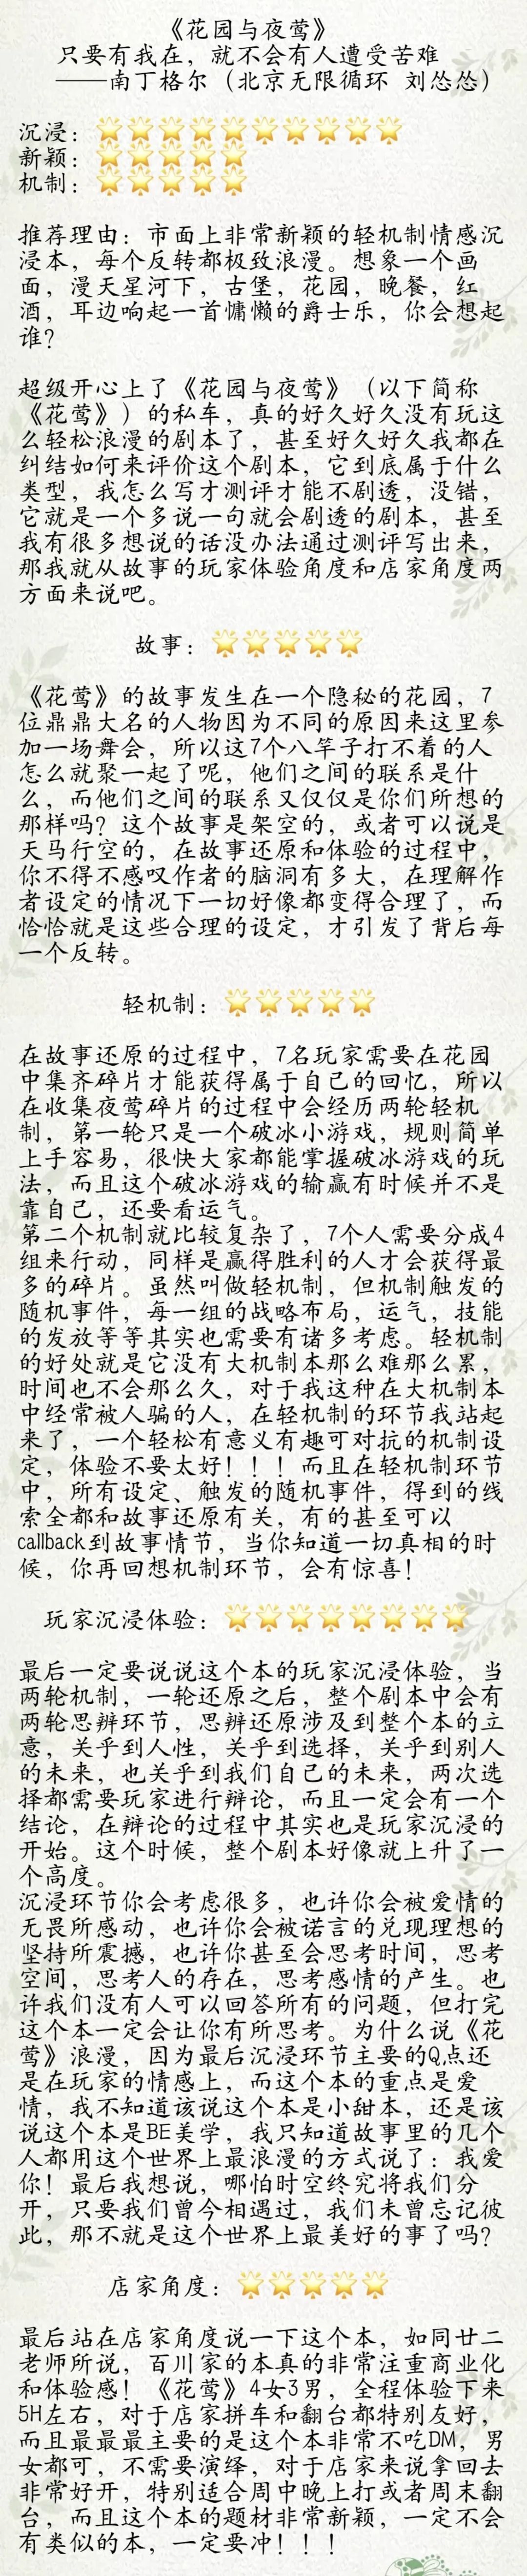 《花园与夜莺》
只要有我在，就不会有人遭受苦难
——南丁格尔（北京无限循环 刘怂怂）
沉浸：🌟🌟🌟🌟🌟🌟🌟🌟🌟🌟
新颖：🌟🌟🌟🌟🌟
机制：🌟🌟🌟🌟🌟
推荐理由：市面上非常新颖的轻机制情感沉
浸本，每个反转都极致浪漫。想象一个画
面，漫天星河下，古堡，花园，晚餐，红
酒，耳边响起一首慵懒的爵士乐，你会想起
谁？
超级开心上了《花园与夜莺》（以下简称
《花莺》）的私车，真的好久好久没有玩这
么轻松浪漫的剧本了，甚至好久好久我都在
纠结如何来评价这个剧本，它到底属于什么
类型，我怎么写才测评才能不剧透，没错，
它就是一个多说一句就会剧透的剧本，甚至
我有很多想说的话没办法通过测评写出来，
那我就从故事的玩家体验角度和店家角度两
方面来说吧。
故事：🌟🌟🌟🌟🌟
《花莺》的故事发生在一个隐秘的花园，7
位鼎鼎大名的人物因为不同的原因来这里参
加一场舞会，所以这7个八竿子打不着的人
怎么就聚一起了呢，他们之间的联系是什
么，而他们之间的联系又仅仅是你们所想的
那样吗？这个故事是架空的，或者可以说是
天马行空的，在故事还原和体验的过程中，
你不得不感叹作者的脑洞有多大，在理解作
者设定的情况下一切好像都变得合理了，而
恰恰就是这些合理的设定，才引发了背后每
一个反转。
轻机制：🌟🌟🌟🌟🌟
在故事还原的过程中，7名玩家需要在花园
中集齐碎片才能获得属于自己的回忆，所以
在收集夜莺碎片的过程中会经历两轮轻机
制，第一轮只是一个破冰小游戏，规则简单
上手容易，很快大家都能掌握破冰游戏的玩
法，而且这个破冰游戏的输赢有时候并不是
靠自己，还要看运气。
第二个机制就比较复杂了，7个人需要分成4
组来行动，同样是赢得胜利的人才会获得最
多的碎片。虽然叫做轻机制，但机制触发的
随机事件，每一组的战略布局，运气，技能
的发放等等其实也需要有诸多考虑。轻机制
的好处就是它没有大机制本那么难那么累，
时间也不会那么久，对于我这种在大机制本
中经常被人骗的人，在轻机制的环节我站起
来了，一个轻松有意义有趣可对抗的机制设
定，体验不要太好！！！而且在轻机制环节
中，所有设定、触发的随机事件，得到的线
索全都和故事还原有关，有的甚至可以
callback到故事情节，当你知道一切真相的时
候，你再回想机制环节，会有惊喜！
玩家沉浸体验：🌟🌟🌟🌟🌟🌟🌟🌟
最后一定要说说这个本的玩家沉浸体验，当
两轮机制，一轮还原之后，整个剧本中会有
两轮思辨环节，思辨还原涉及到整个本的立
意，关乎到人性，关乎到选择，关乎到别人
的未来，也关乎到我们自己的未来，两次选
择都需要玩家进行辩论，而且一定会有一个
结论，在辩论的过程中其实也是玩家沉浸的
开始。这个时候，整个剧本好像就上升了一
个高度。
沉浸环节你会考虑很多，也许你会被爱情的
无畏所感动，也许你会被诺言的兑现理想的
坚持所震撼，也许你甚至会思考时间，思考
空间，思考人的存在，思考感情的产生。也
许我们没有人可以回答所有的问题，但打完
这个本一定会让你有所思考。为什么说《花
莺》浪漫，因为最后沉浸环节主要的Q点还
是在玩家的情感上，而这个本的重点是爱
情，我不知道该说这个本是小甜本，还是该
说这个本是BE美学，我只知道故事里的几个
人都用这个世界上最浪漫的方式说了：我爱
你！最后我想说，哪怕时空终究将我们分
开，只要我们曾今相遇过，我们未曾忘记彼
此，那不就是这个世界上最美好的事了吗？
店家角度：🌟🌟🌟🌟🌟
最后站在店家角度说一下这个本，如同廿二
老师所说，百川家的本真的非常注重商业化
和体验感！《花莺》4女3男，全程体验下来
5H左右，对于店家拼车和翻台都特别友好，
而且最最最主要的是这个本非常不吃DM，男
女都可，不需要演绎，对于店家来说拿回去
非常好开，特别适合周中晚上打或者周末翻
台，而且这个本的题材非常新颖，一定不会
有类似的本，一定要冲！！！